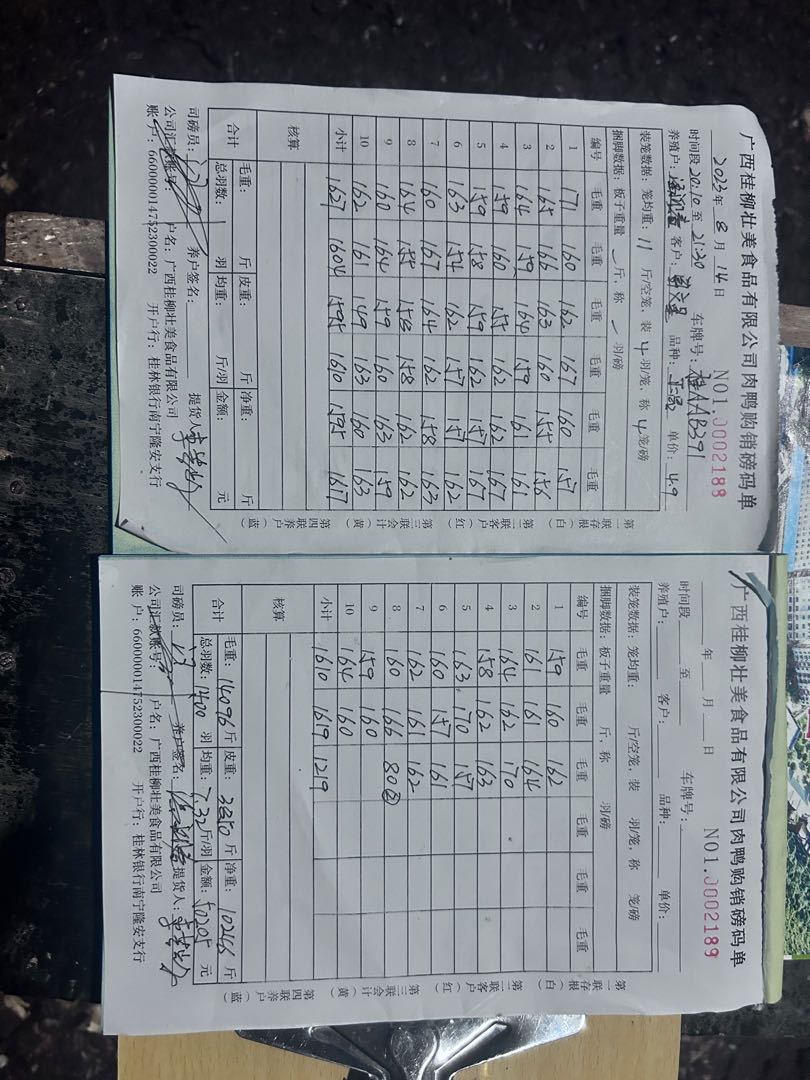 广西桂柳壮美食品有限公司肉鸭购销磅码单
NO1.0002188
2023年 8月 14日 车牌号:桂AAB391
时间段 20:10 至 21:30
养殖户: 客户: 品种: 单价: 4.9
装笼数据: 笼均重: 11 斤/空笼, 装 4 羽/笼, 称 4 笼/磅
捆脚数据: 板子重量 / 斤, 称 / 羽/磅
编号 毛重 毛重 毛重 毛重 毛重 毛重
1 171 160 162 167 160 157
2 165 166 163 160 155 156
3 164 159 164 159 161 161
4 159 160 155 162 162 167
5 159 158 159 162 157 167
6 163 154 162 157 157 162
7 160 167 164 162 158 163
8 164 155 158 158 162 162
9 160 164 159 160 163 159
10 162 161 149 163 160 163
小计 1627 1604 1595 1610 1595 1617
核算
合计 毛重: 斤 皮重: 斤 净重: 斤
总羽数: 羽 均重: 斤/羽 金额: 元
司磅员: 养户签名: 提货人:
公司汇款账号: 户名: 广西桂柳壮美食品有限公司
账户: 660000014752300022 开户行: 桂林银行南宁隆安支行
第一联存根(白) 第二联客户(红) 第三联会计(黄) 第四联养户(蓝)
广西桂柳壮美食品有限公司肉鸭购销磅码单
NO1.0002189
年 月 日 车牌号:
时间段 至
养殖户: 客户: 品种: 单价:
装笼数据: 笼均重: 斤/空笼, 装 羽/笼, 称 笼/磅
捆脚数据: 板子重量 斤, 称 羽/磅
编号 毛重 毛重 毛重 毛重 毛重 毛重
1 159 160 162
2 161 161 164
3 164 162 170
4 158 162 163
5 163 170 157
6 160 157 161
7 162 161 162
8 160 166 80②
9 159 160
10 164 160
小计 1610 1619 1219
核算
合计 毛重: 14096 斤 皮重: 3850 斤 净重: 10246 斤
总羽数: 1400 羽 均重: 7.32 斤/羽 金额: 50205 元
司磅员: 养户签名: 提货人:
公司汇款账号: 户名: 广西桂柳壮美食品有限公司
账户: 660000014752300022 开户行: 桂林银行南宁隆安支行
第一联存根(白) 第二联客户(红) 第三联会计(黄) 第四联养户(蓝)